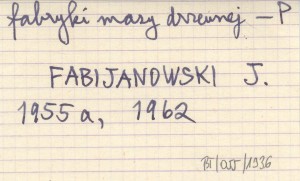 fabryki masy drzewnej – P
FABIJANOWSKI J.
1955a, 1962
BT/055/1936